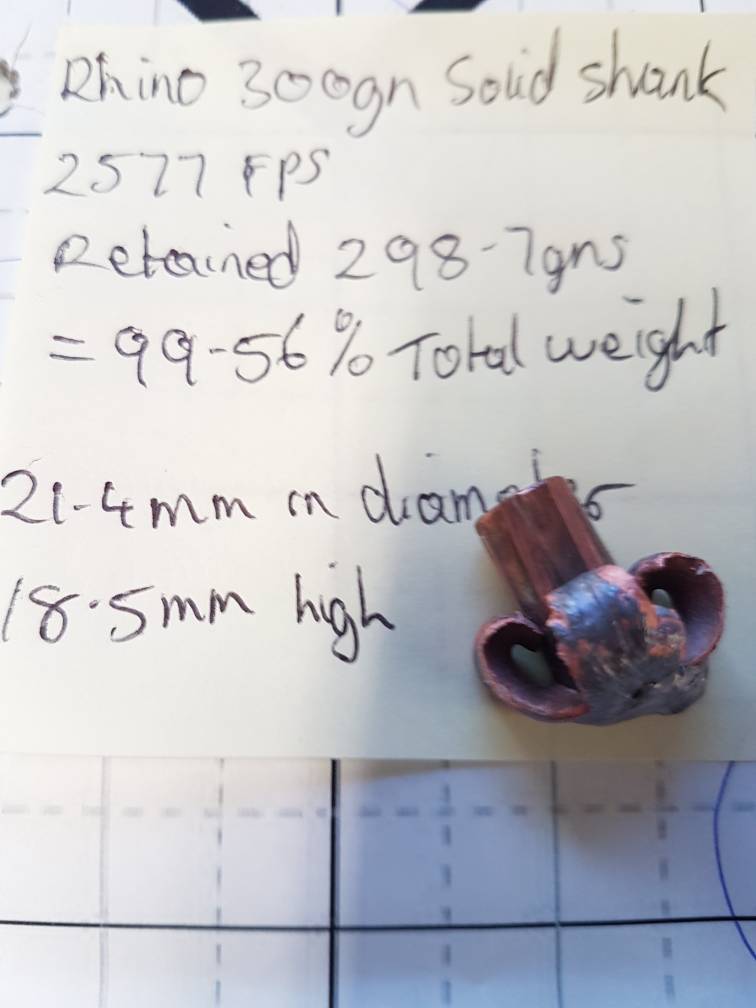 Rhino 300gn Solid shank
2577 FPS
Retained 298-7gns
= 99-56% Total weight
21-4mm in diameter
18.5mm high